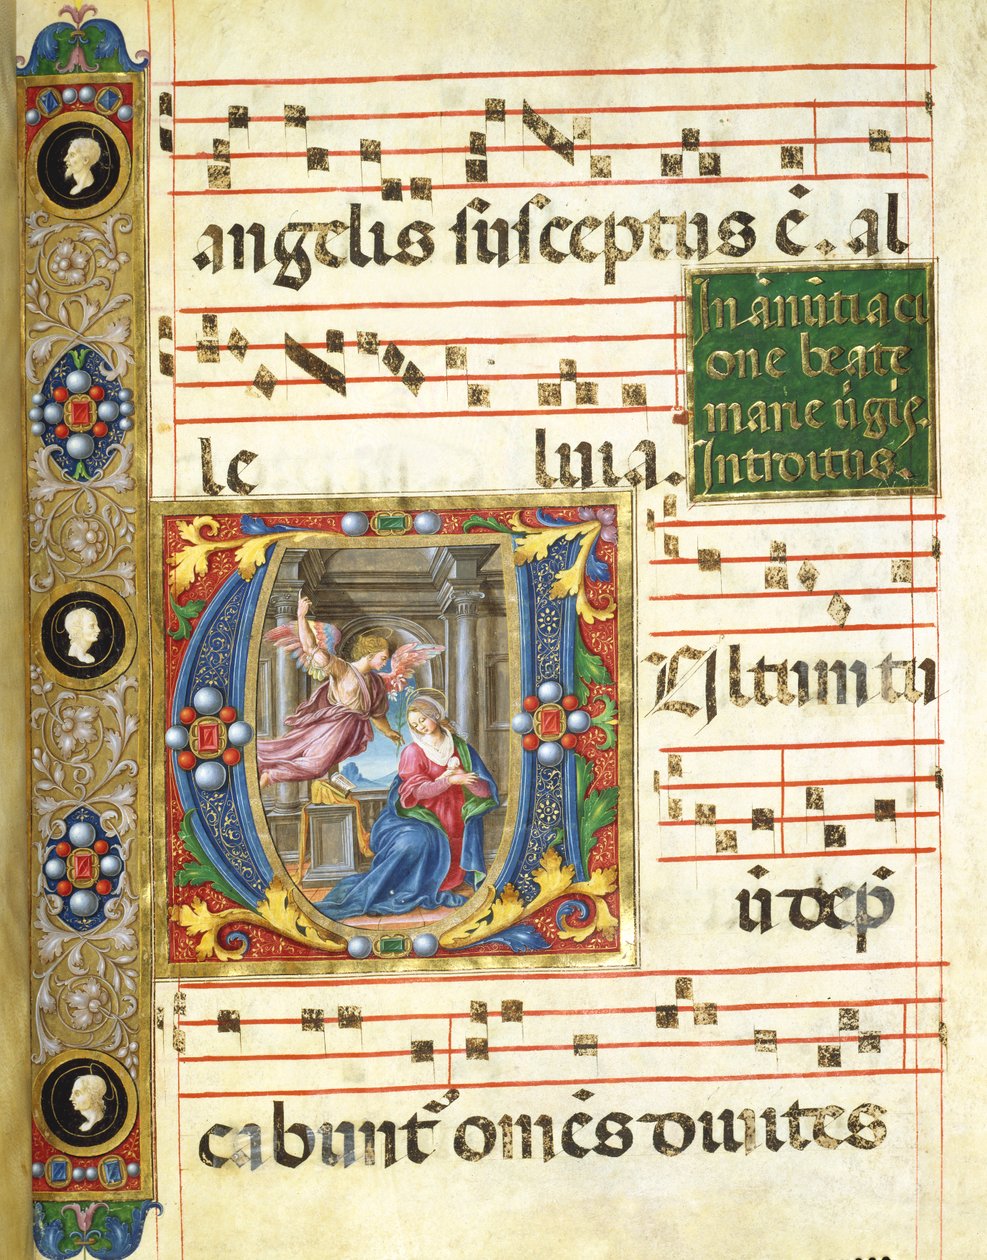 angelus suſceptus ē. al
le luia.
In ānūtiaci
one beate
marie v̄gīs.
Introitus.
V Ultum tu
ū dep̄
cabunt᷑ om̄es divites